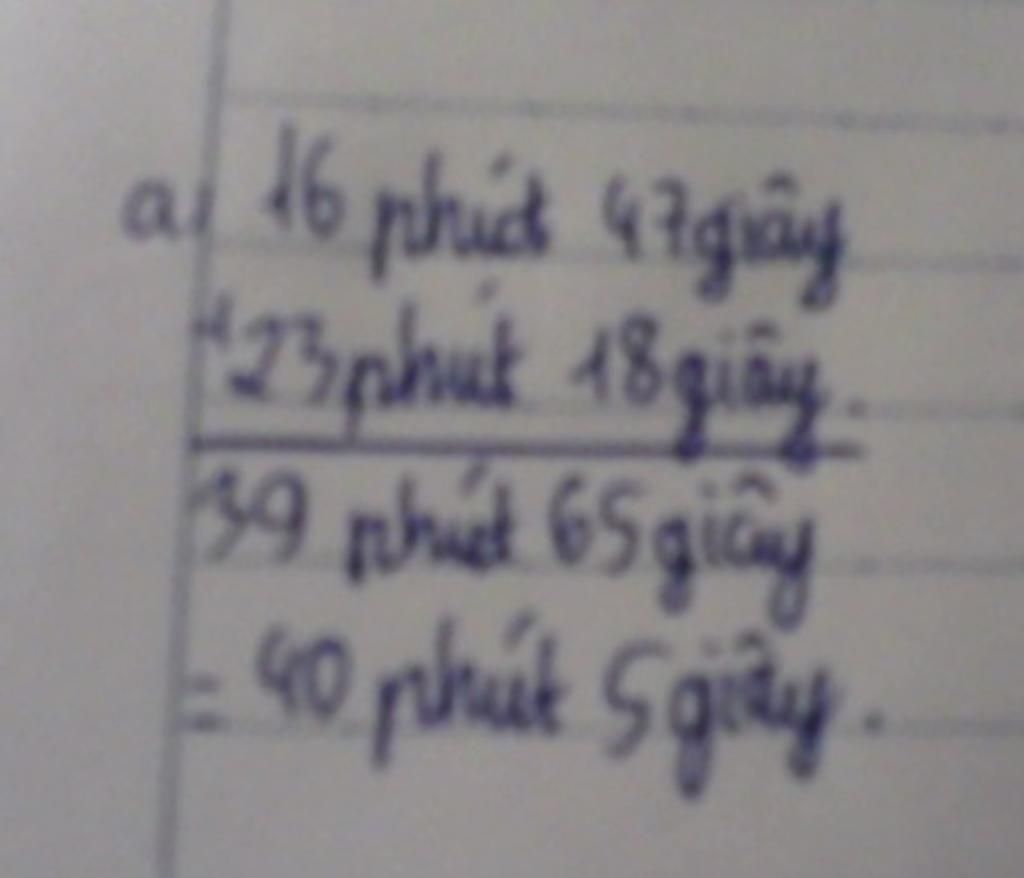 a, 16 phút 47 giây
+ 23 phút 18 giây.
39 phút 65 giây
= 40 phút 5 giây.